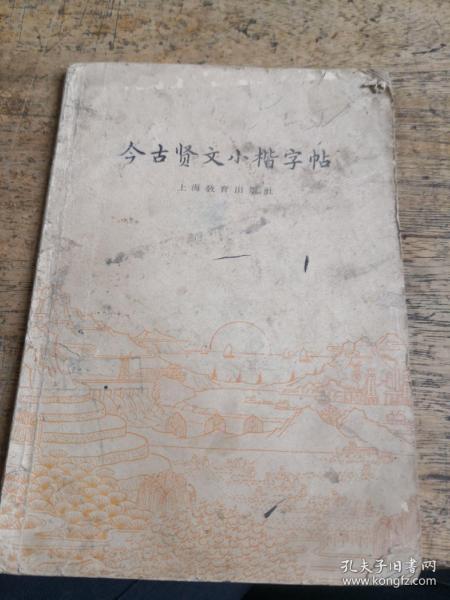 今古贤文小楷字帖
上海教育出版社
孔夫子旧书网
www.kongfz.com